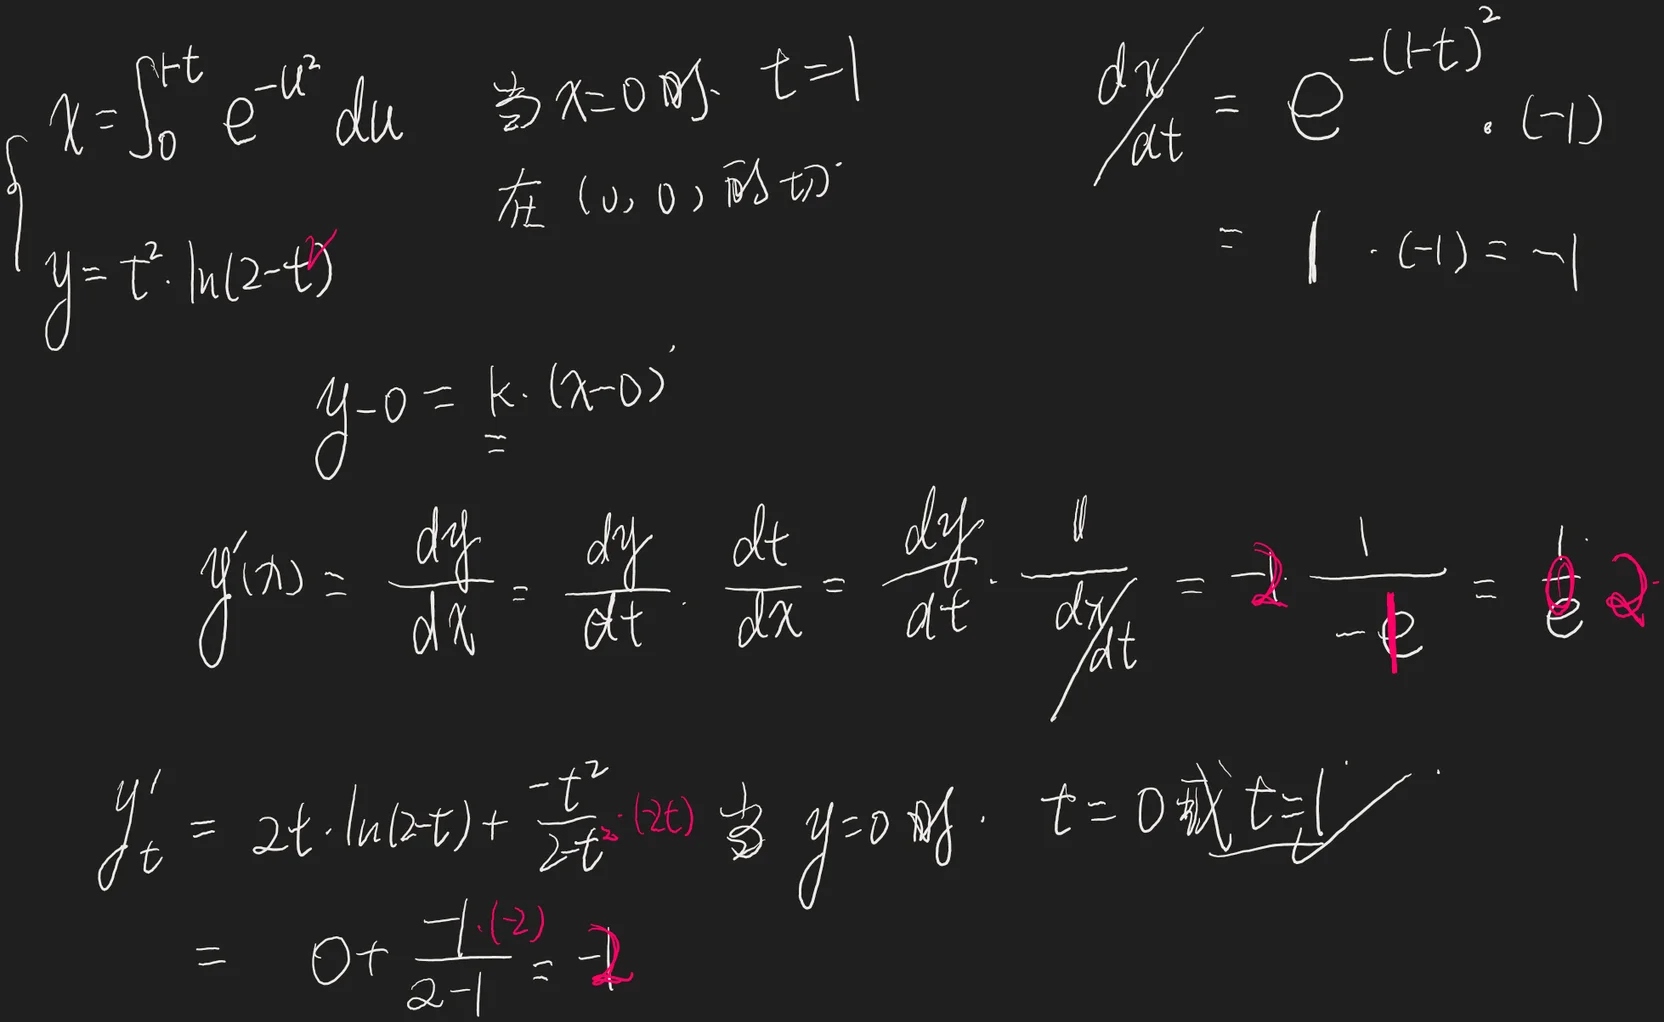 x = ∫₀^{1-t} e^{-u²} du 当 x=0 时. t=1
在 (0, 0) 的切
y = t². ln(2-t²)
dx/dt = e^{-(1-t)²} · (-1)
= 1 · (-1) = -1
y-0 = k. (x-0)
y'(x) = dy/dx = dy/dt · dt/dx = dy/dt · 1/(dx/dt) = -2 · 1/(-1) = 2
y't = 2t · ln(2-t) + -t²/(2-t²) · (2t) 当 y=0 时. t=0 或 t=1
= 0 + -1·(-2)/(2-1) = -2